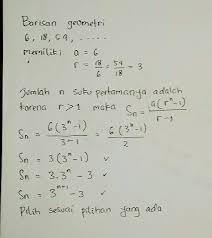 Barisan geometri
6, 18, 54, .....
memiliki a = 6
r = 18/6 = 54/18 = 3
Jumlah n suku pertamanya adalah
karena r > 1 maka Sn = a(rⁿ-1)/r-1
Sn = 6(3ⁿ-1)/3-1 = 6(3ⁿ-1)/2
Sn = 3(3ⁿ-1) ✓
Sn = 3.3ⁿ - 3 ✓
Sn = 3ⁿ⁺¹ - 3 ✓
Pilih sesuai pilihan yang ada